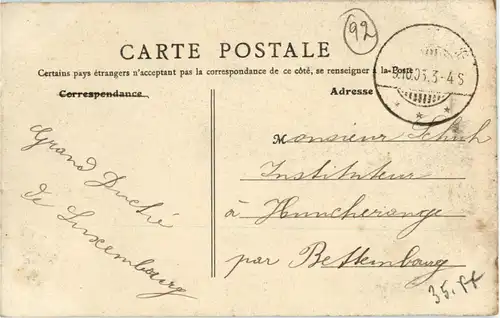 92
CARTE POSTALE
Certains pays étrangers n'acceptent pas la correspondance de ce côté, se renseigner à la Poste
Correspondance
Adresse
9.10.05.3-4S
Monsieur Schuh
Instituteur
à Huncherange
par Bettembourg
Grand Duché
de Luxembourg
35.ff